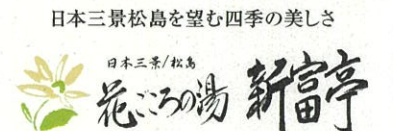 日本三景松島を望む四季の美しさ
日本三景/松島
花ごころの湯 新富亭